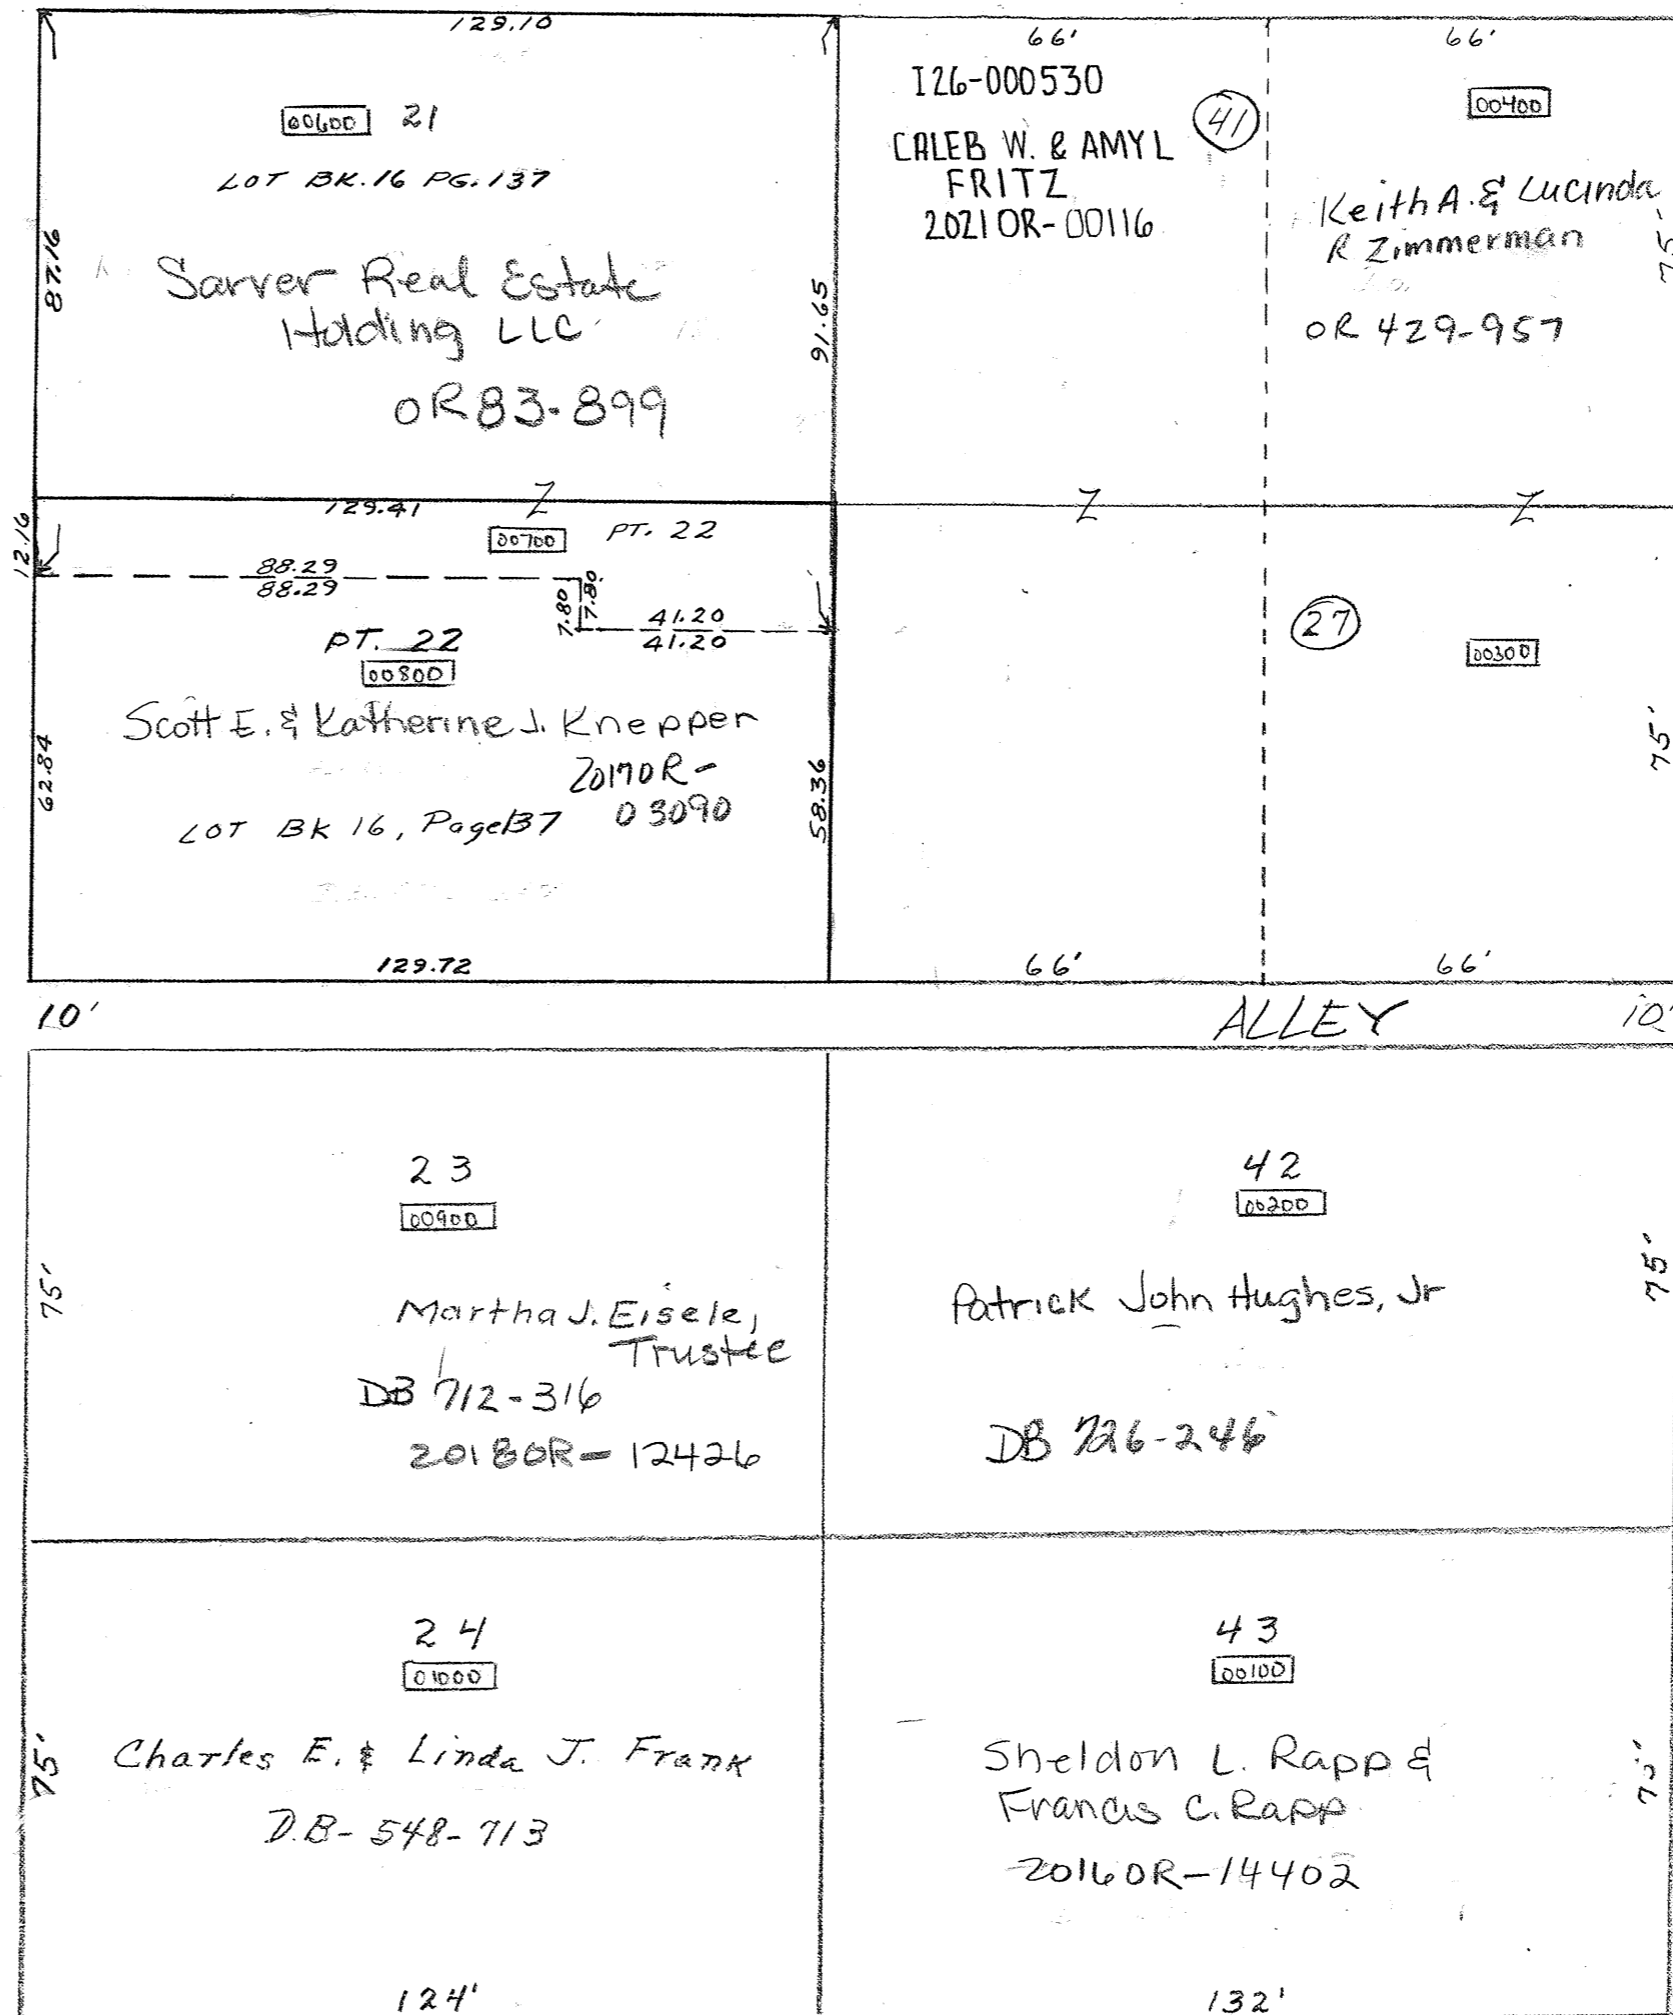 129.10
00600 21
LOT BK. 16 PG. 137
87.16
Sarver Real Estate
Holding LLC
OR 83-899
91.65
66'
I26-000530
CALEB W. & AMY L
FRITZ
2021OR-00116
41
66'
00400
Keith A. & Lucinda
R Zimmerman
OR 429-957
75'
12.16
129.41
Z
00700 PT. 22
88.29
88.29
7.80
7.80
41.20
41.20
PT. 22
00800
Scott E. & Katherine J. Knepper
2017OR-
03090
LOT BK 16, Page 137
62.84
58.36
129.72
Z
Z
27
00300
75'
66'
66'
10'
ALLEY
10'
23
00900
75'
Martha J. Eisele,
Trustee
DB 712-316
2018OR-12426
42
00200
Patrick John Hughes, Jr
DB 726-246
75'
24
01000
75'
Charles E. & Linda J. Frank
D.B- 548-713
124'
43
00100
Sheldon L. Rapp &
Francis C. Rapp
2016OR-14402
75'
132'